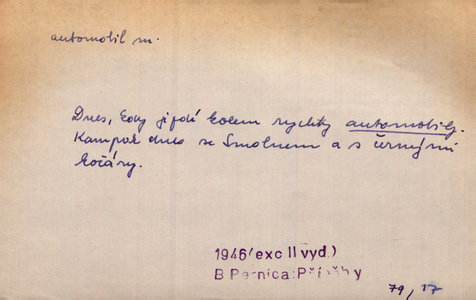 automobil m.
Dnes, kdy jezdí kolem rychlý automobily.
Kampak dnes se Smolnem a s černými
kočáry.
1946(exc II vyd.)
B Pernica: Příběhy
79, 17